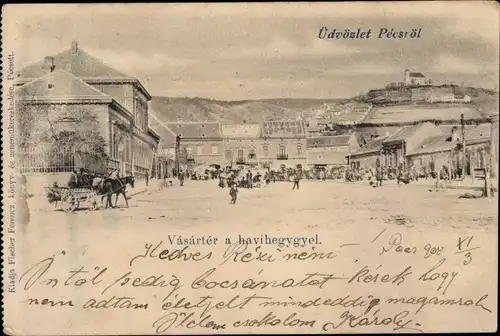 Üdvözlet Pécsről
Kiadja Fischer Ferencz könyv- és zeneműkereskedése, Pécsett.
Vásártér a havihegygyel.
Kedves Rézi néni! Pécs 900 XI/3
Öntől pedig bocsánatot kérek hogy
nem adtam életjelt mindeddig magamról
Kezeit csókolom Károly